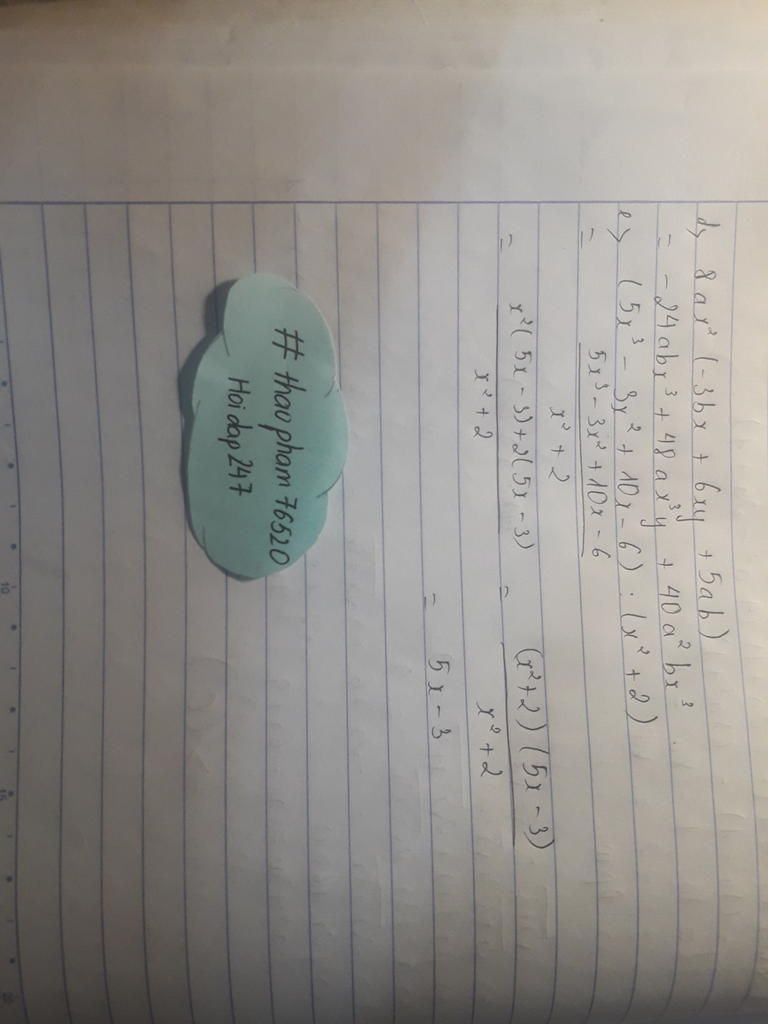 d> 8ax² (-3bx + 6xy + 5ab)
= -24abx³ + 48ax³y + 40a²bx³.
e> (5x³ - 3x² + 10x - 6) : (x² + 2)
= (5x³ - 3x² + 10x - 6) / (x² + 2)
= (x²(5x - 3) + 2(5x - 3)) / (x² + 2) = ((x² + 2)(5x - 3)) / (x² + 2)
= 5x - 3
# thaopham76520
Hoidap247
10
15
20